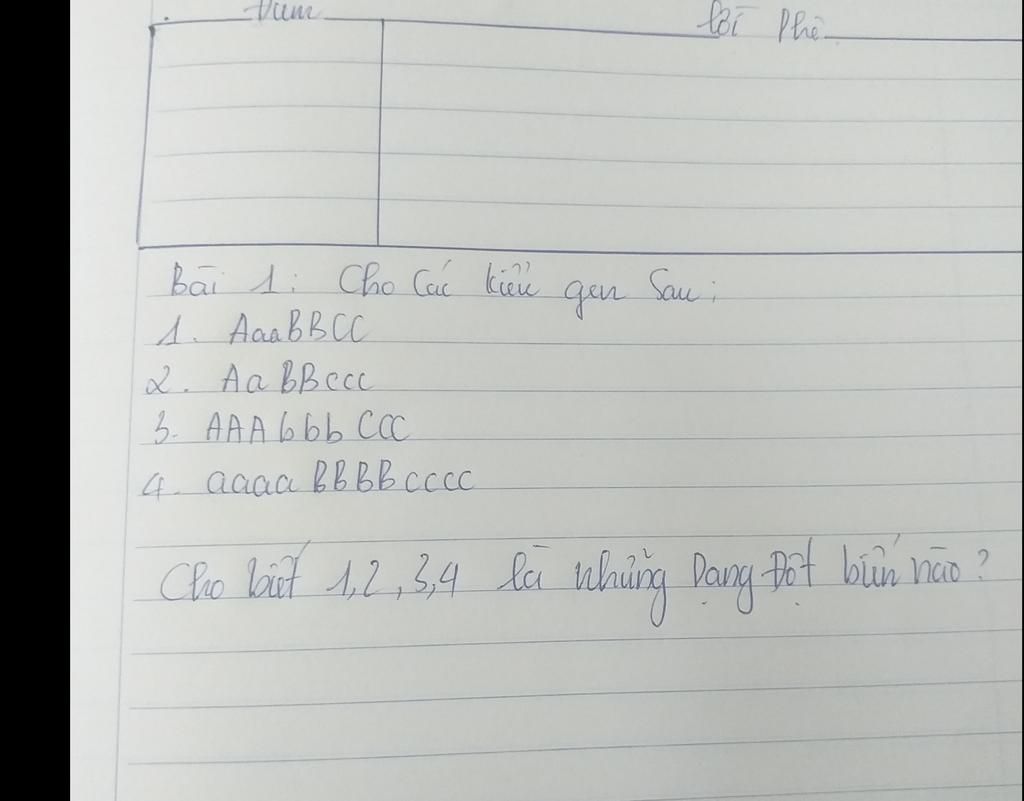 Điểm Lời Phê
Bài 1: Cho Các kiểu gen Sau:
1. AaaBBCC
2. AaBBccc
3. AAAbbbCCC
4. aaaaBBBBcccc
Cho biết 1,2,3,4 là những Dạng Đột biến nào?